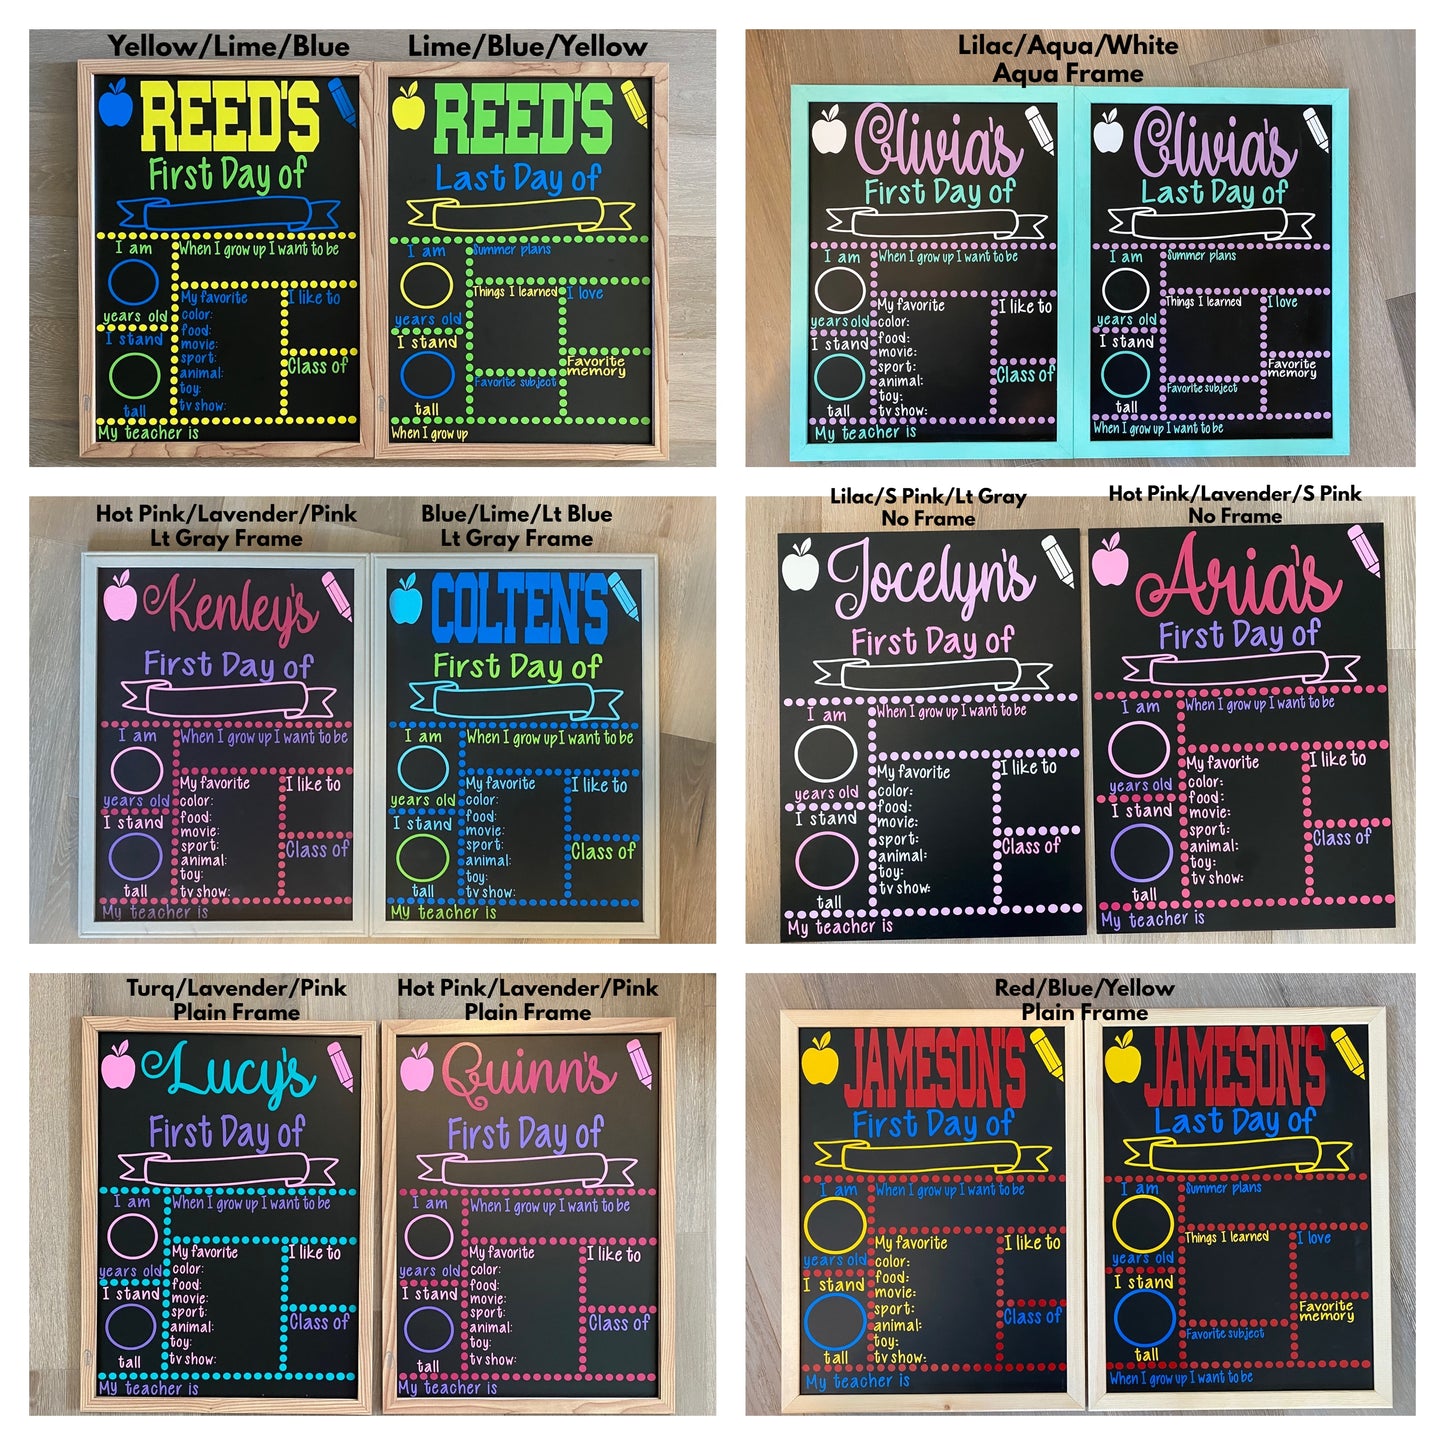 Yellow/Lime/Blue
REED'S
First Day of
I am
When I grow up I want to be
years old
I stand
tall
My favorite
color:
food:
movie:
sport:
animal:
toy:
tv show:
I like to
Class of
My teacher is
Lime/Blue/Yellow
REED'S
Last Day of
I am
Summer plans
years old
I stand
tall
Things I learned
I love
Favorite
memory
Favorite subject
When I grow up
Lilac/Aqua/White
Aqua Frame
Olivia's
First Day of
I am
When I grow up I want to be
years old
I stand
tall
My favorite
color:
food:
movie:
sport:
animal:
toy:
tv show:
I like to
Class of
My teacher is
Olivia's
Last Day of
I am
Summer plans
years old
I stand
tall
Things I learned
I love
Favorite
memory
Favorite subject
When I grow up I want to be
Hot Pink/Lavender/Pink
Lt Gray Frame
Kenley's
First Day of
I am
When I grow up I want to be
years old
I stand
tall
My favorite
color:
food:
movie:
sport:
animal:
toy:
tv show:
I like to
Class of
My teacher is
Blue/Lime/Lt Blue
Lt Gray Frame
COLTEN'S
First Day of
I am
When I grow up I want to be
years old
I stand
tall
My favorite
color:
food:
movie:
sport:
animal:
toy:
tv show:
I like to
Class of
My teacher is
Lilac/S Pink/Lt Gray
No Frame
Jocelyn's
First Day of
I am
When I grow up I want to be
years old
I stand
tall
My favorite
color:
food:
movie:
sport:
animal:
toy:
tv show:
I like to
Class of
My teacher is
Hot Pink/Lavender/S Pink
No Frame
Aria's
First Day of
I am
When I grow up I want to be
years old
I stand
tall
My favorite
color:
food:
movie:
sport:
animal:
toy:
tv show:
I like to
Class of
My teacher is
Turq/Lavender/Pink
Plain Frame
Lucy's
First Day of
I am
When I grow up I want to be
years old
I stand
tall
My favorite
color:
food:
movie:
sport:
animal:
toy:
tv show:
I like to
Class of
My teacher is
Hot Pink/Lavender/Pink
Plain Frame
Quinn's
First Day of
I am
When I grow up I want to be
years old
I stand
tall
My favorite
color:
food:
movie:
sport:
animal:
toy:
tv show:
I like to
Class of
My teacher is
Red/Blue/Yellow
Plain Frame
JAMESON'S
First Day of
I am
When I grow up I want to be
years old
I stand
tall
My favorite
color:
food:
movie:
sport:
animal:
toy:
tv show:
I like to
Class of
My teacher is
JAMESON'S
Last Day of
I am
Summer plans
years old
I stand
tall
Things I learned
I love
Favorite
memory
Favorite subject
When I grow up I want to be